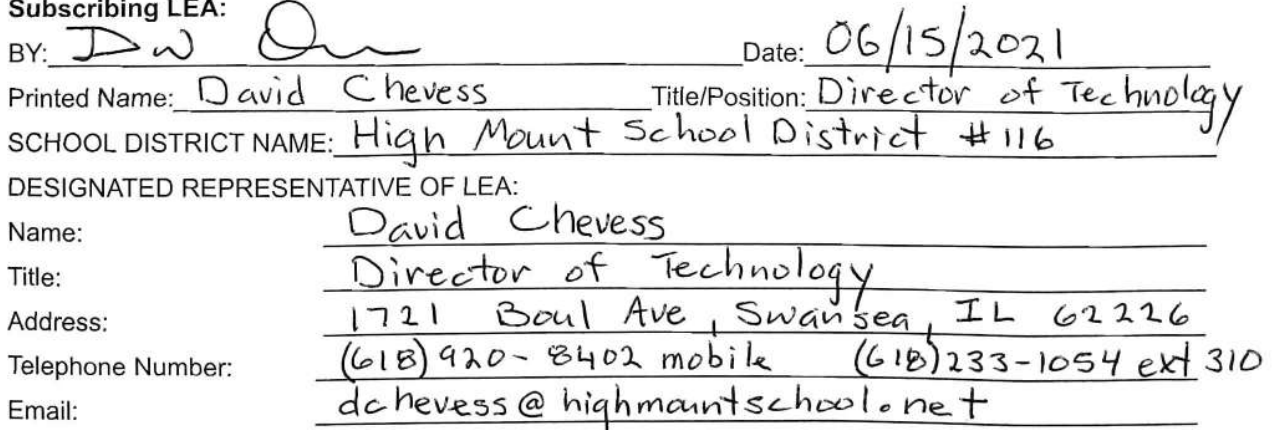 Subscribing LEA:
BY: Date: 06/15/2021
Printed Name: David Chevess Title/Position: Director of Technology
SCHOOL DISTRICT NAME: High Mount School District #116
DESIGNATED REPRESENTATIVE OF LEA:
Name: David Chevess
Title: Director of Technology
Address: 1721 Boul Ave, Swansea, IL 62226
Telephone Number: (618) 920-8402 mobile (618) 233-1054 ext 310
Email: dchevess@highmountschool.net